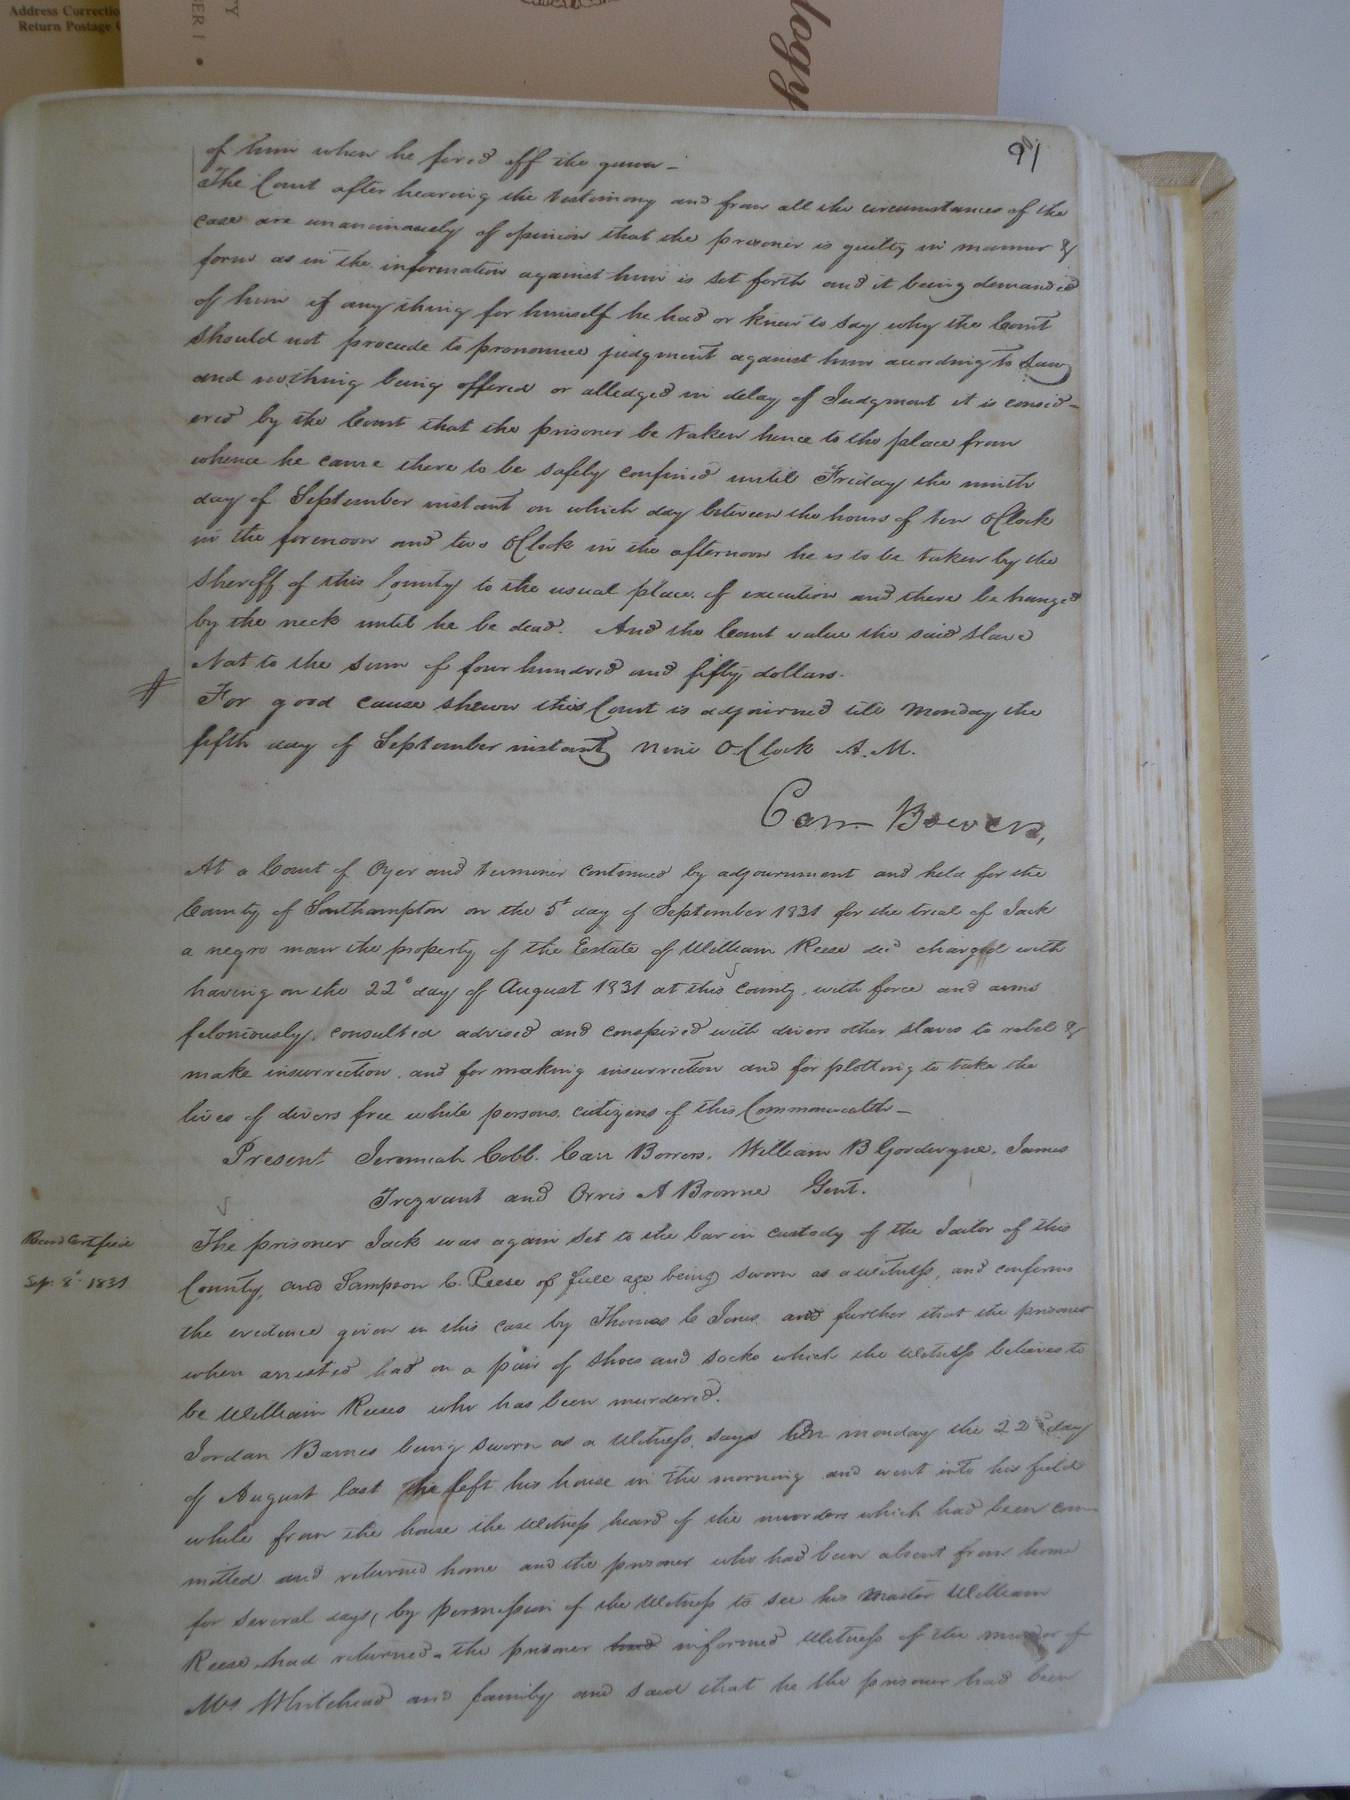 Address Correctio
Return Postage
TY
BER 1 •
logy
91
of him when he fired off the gun –
The Court after hearing the testimony and from all the circumstances of the
case are unanimously of opinion that the prisoner is guilty in manner &
form as in the information against him is set forth and it being demanded
of him if any thing for himself he had or knew to say why the Court
should not procede to pronounce judgment against him acording to Law
and nothing being offered or alledged in delay of Judgment it is consid-
ered by the Court that the prisoner be taken hence to the place from
whence he came there to be safely confined until Friday the ninth
day of September instant on which day between the hours of ten OClock
in the forenoon and two OClock in the afternoon he is to be taken by the
Sheriff of this County to the usual place of execution and there be hanged
by the neck until he be dead. And the Court value the said slave
Nat to the sum of four hundred and fifty dollars.
For good cause shewn this Court is adjourned till Monday the
fifth day of September instant nine OClock A.M.
Carr Bowers,
At a Court of Oyer and terminer continued by adjournment and held for the
County of Southampton on the 5t day of September 1831 for the trial of Jack
a negro man the property of the Estate of William Reese decd charged with
having on the 22d day of August 1831 at this County, with force and arms
feloniously, consulted advised and conspired with divers other slaves to rebel &
make insurrection and for making insurrection and for plotting to take the
lives of divers free white persons citizens of this Commonwealth –
Present Jeremiah Cobb. Carr Bowers. William B Goodwyne. James
Trezvant and Orris A Browne Gent.
The prisoner Jack was again set to the bar in custody of the Jailor of this
Record Certified
County, and Sampson C. Reese of full age being sworn as a witness, and confirms
Sep. 8t 1831
the evidence given in this case by Thomas C Jones and further that the prisoner
when arrested had on a pair of shoes and socks which the witness believes to
be William Reeses who has been murdered.
Jordan Barnes being sworn as a witness, says On monday the 22d day
of August last he left his house in the morning and went into his field
while from the house the witness heard of the murders which had been com-
mitted and returned home and the prisoner who had been absent from home
for several days, by permission of the witness to see his master William
Reese had returned. the prisoner had informed witness of the murder of
Mrs Whitehead and family and said that he the prisoner had been